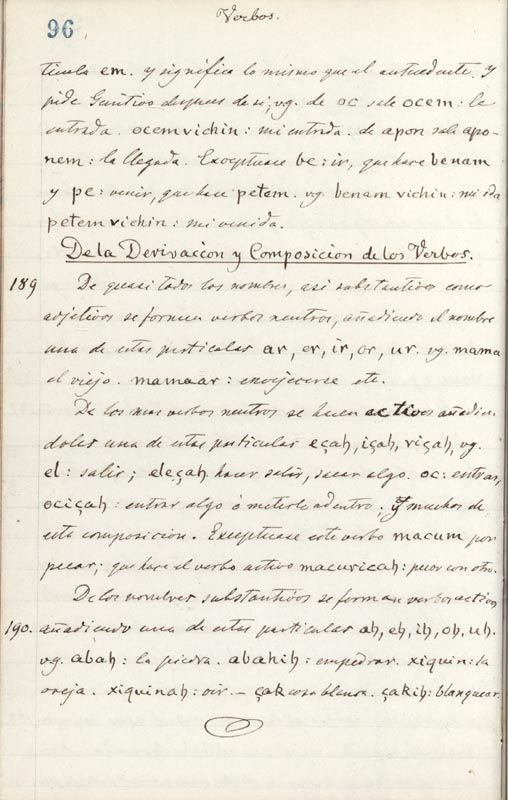 96
Verbos.
ticula em. y significa lo mismo que el antecedente. y
pide Genitivo despues de si; vg. de oc sale ocem: la
entrada. ocem vichin: mi entrada. de apon sale apo-
nem: la llegada. Exceptuase be: ir, que hace benam
y pe: venir, que hace petem. vg. benam vichin: mi ida
petem vichin: mi venida.
De la Derivacion y Composicion de los Verbos.
189 De quasi todos los nombres, asi substantivos como
adjetivos se forman verbos neutros, añadiendo al nombre
una de estas particulas ar, er, ir, or, ur. vg. mama
el viejo. mamaar: envejecerse etc.
De los mas verbos neutros se hacen activos añadien
doles una de estas particulas eçaḥ, içaḥ, riçaḥ, vg.
el: salir; eleçaḥ hacer salir, sacar algo. oc: entrar,
ociçaḥ: entrar algo ó meterle adentro. y muchos de
esta composicion. Exceptuase este verbo macum por
pecar; que hace el verbo activo macuricaḥ: pecar con otro.
De los nombres substantivos se forman verbos activos
190. añadiendo una de estas particulas aḥ, eḥ, iḥ, oḥ, uḥ.
vg. abaḥ: la piedra. abaḥiḥ: empedrar. xiquin: la
oreja. xiquinaḥ: oir. – çak cosa blanca. çakiḥ: blanquear.